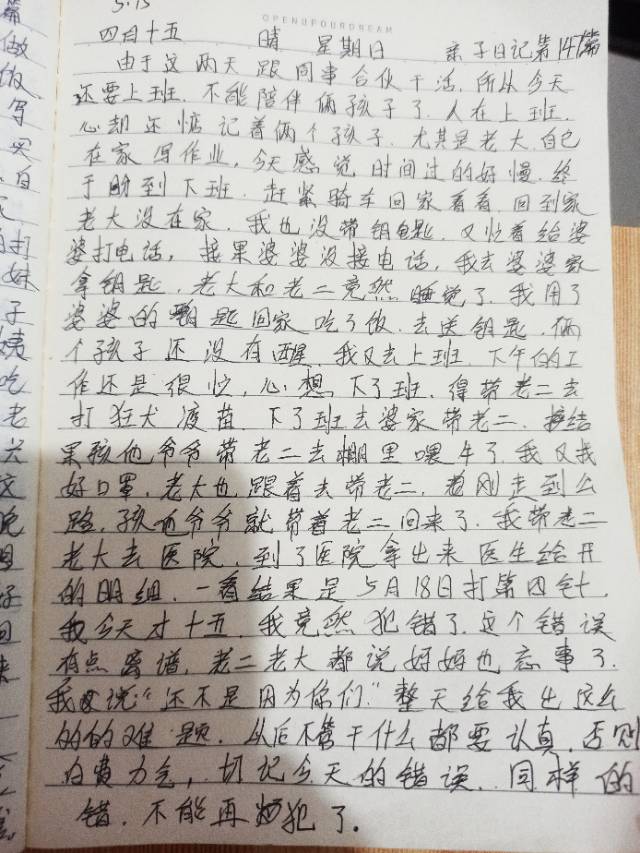 5.15
OPENUPOURDREAM
四月十五 晴 星期日 亲子日记第147篇
由于这两天跟同事合伙干活,所以今天
还要上班.不能陪伴俩孩子了.人在上班.
心却还惦记着俩个孩子.尤其是老大.自己
在家写作业,今天感觉时间过的好慢.终
于盼到下班.赶紧骑车回家看看.回到家
老大没在家.我也没带钥匙.又忙着给婆
婆打电话,接果婆婆没接电话,我去婆婆家
拿钥匙.老大和老二竟然睡觉了.我用了
婆婆的匙回家吃了饭.去送钥匙.俩
个孩子还没有醒.我又去上班.下午的工
作还是很忙,心想.下了班.得带老二去
打狂犬疫苗.下了班去婆家带老二.结
果孩他爷爷带老二去棚里喂牛了.我又找
好口罩.老大也跟着去带老二.刚走到公
路.孩他爷爷就带着老二回来了.我带老二
老大去医院,到了医院拿出来医生给开
的明细.一看结果是5月18日打第四针,
我今天才十五.我竟然犯错了.这个错误
有点离谱.老二老大都说妈妈也忘事了.
我说“还不是因为你们.”整天给我出这么
的的难题.从后不管干什么都要认真.否则
白费力气,切记今天的错误.同样的
错.不能再犯了.
篇
做
饭
写
买
打
妹
子
姨
吃
老